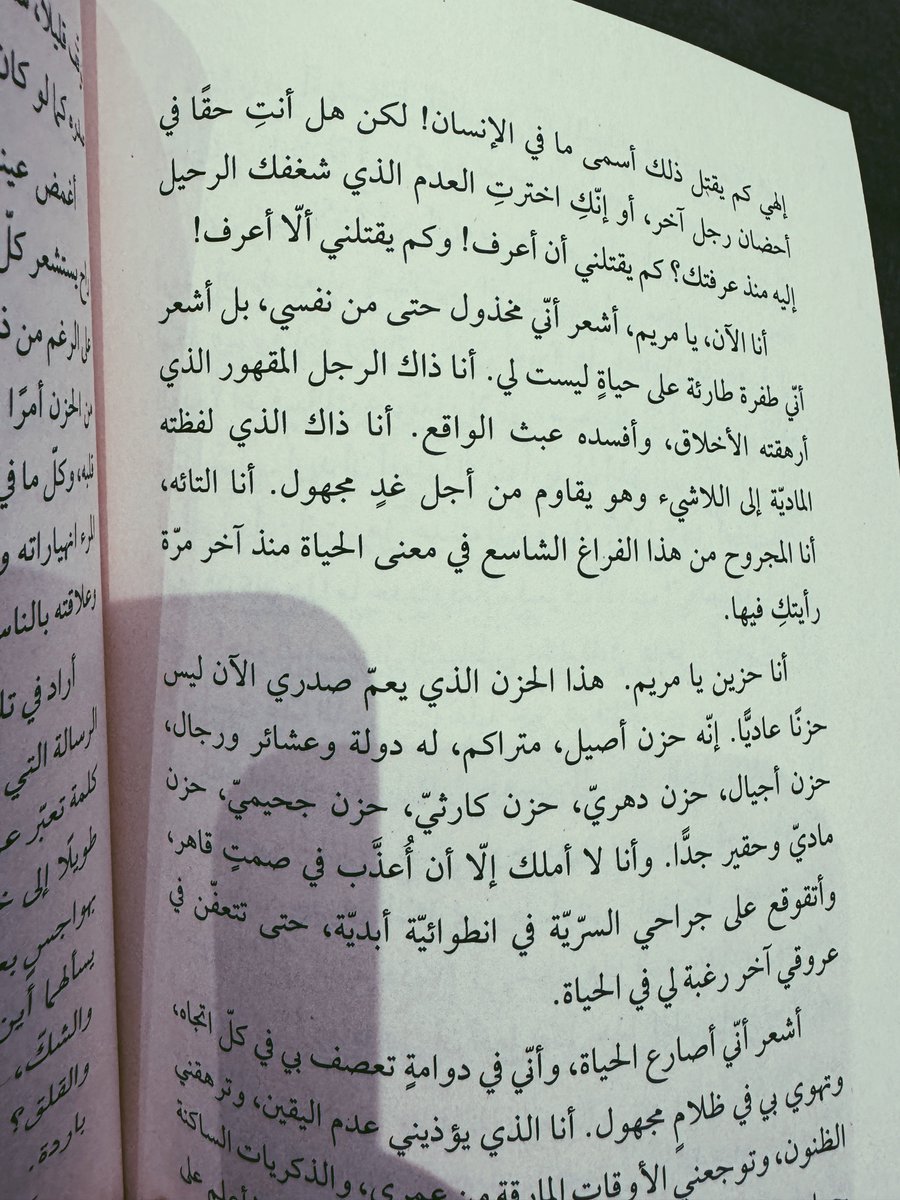 إلهي كم يقتل ذلك أسمى ما في الإنسان! لكن هل أنتِ حقًا في
أحضان رجل آخر، أو إنّكِ اخترتِ العدم الذي شغفك الرحيل
إليه منذ عرفتك؟ كم يقتلني أن أعرف! وكم يقتلني ألّا أعرف!
أنا الآن، يا مريم، أشعر أنّي مخذول حتى من نفسي، بل أشعر
أنّي طفرة طارئة على حياةٍ ليست لي. أنا ذاك الرجل المقهور الذي
أرهقته الأخلاق، وأفسده عبث الواقع. أنا ذاك الذي لفظته
الماديّة إلى اللاشيء وهو يقاوم من أجل غدٍ مجهول. أنا التائه،
أنا المجروح من هذا الفراغ الشاسع في معنى الحياة منذ آخر مرّة
رأيتكِ فيها.
أنا حزين يا مريم. هذا الحزن الذي يعمّ صدري الآن ليس
حزنًا عاديًّا. إنّه حزن أصيل، متراكم، له دولة وعشائر ورجال،
حزن أجيال، حزن دهريّ، حزن كارثيّ، حزن جحيميّ، حزن
ماديّ وحقير جدًّا. وأنا لا أملك إلّا أن أُعذَّب في صمتٍ قاهر،
وأتقوقع على جراحي السرّيّة في انطوائيّة أبديّة، حتى تتعفّن في
عروقي آخر رغبة لي في الحياة.
أشعر أنّي أصارع الحياة، وأنّي في دوامةٍ تعصف بي في كلّ اتجاه،
وتهوي بي في ظلامٍ مجهول. أنا الذي يؤذيني عدم اليقين، وترهقني
الظنون، وتوجعني الأوقات المارقة من عمري، والذكريات الساكنة
قليلًا،
كما لو كان
أغمض
يستشعر كلّ
على الرغم من
من الحزن أمرًا
قلبه، وكلّ ما في
المرء انهياراته و
وعلاقته بالناس
أراد في
الرسالة التي
كلمة تعبّر
طويلًا إلى
بهواجس
يسألهما أين
والشكّ،
والقلق؟
باردة.